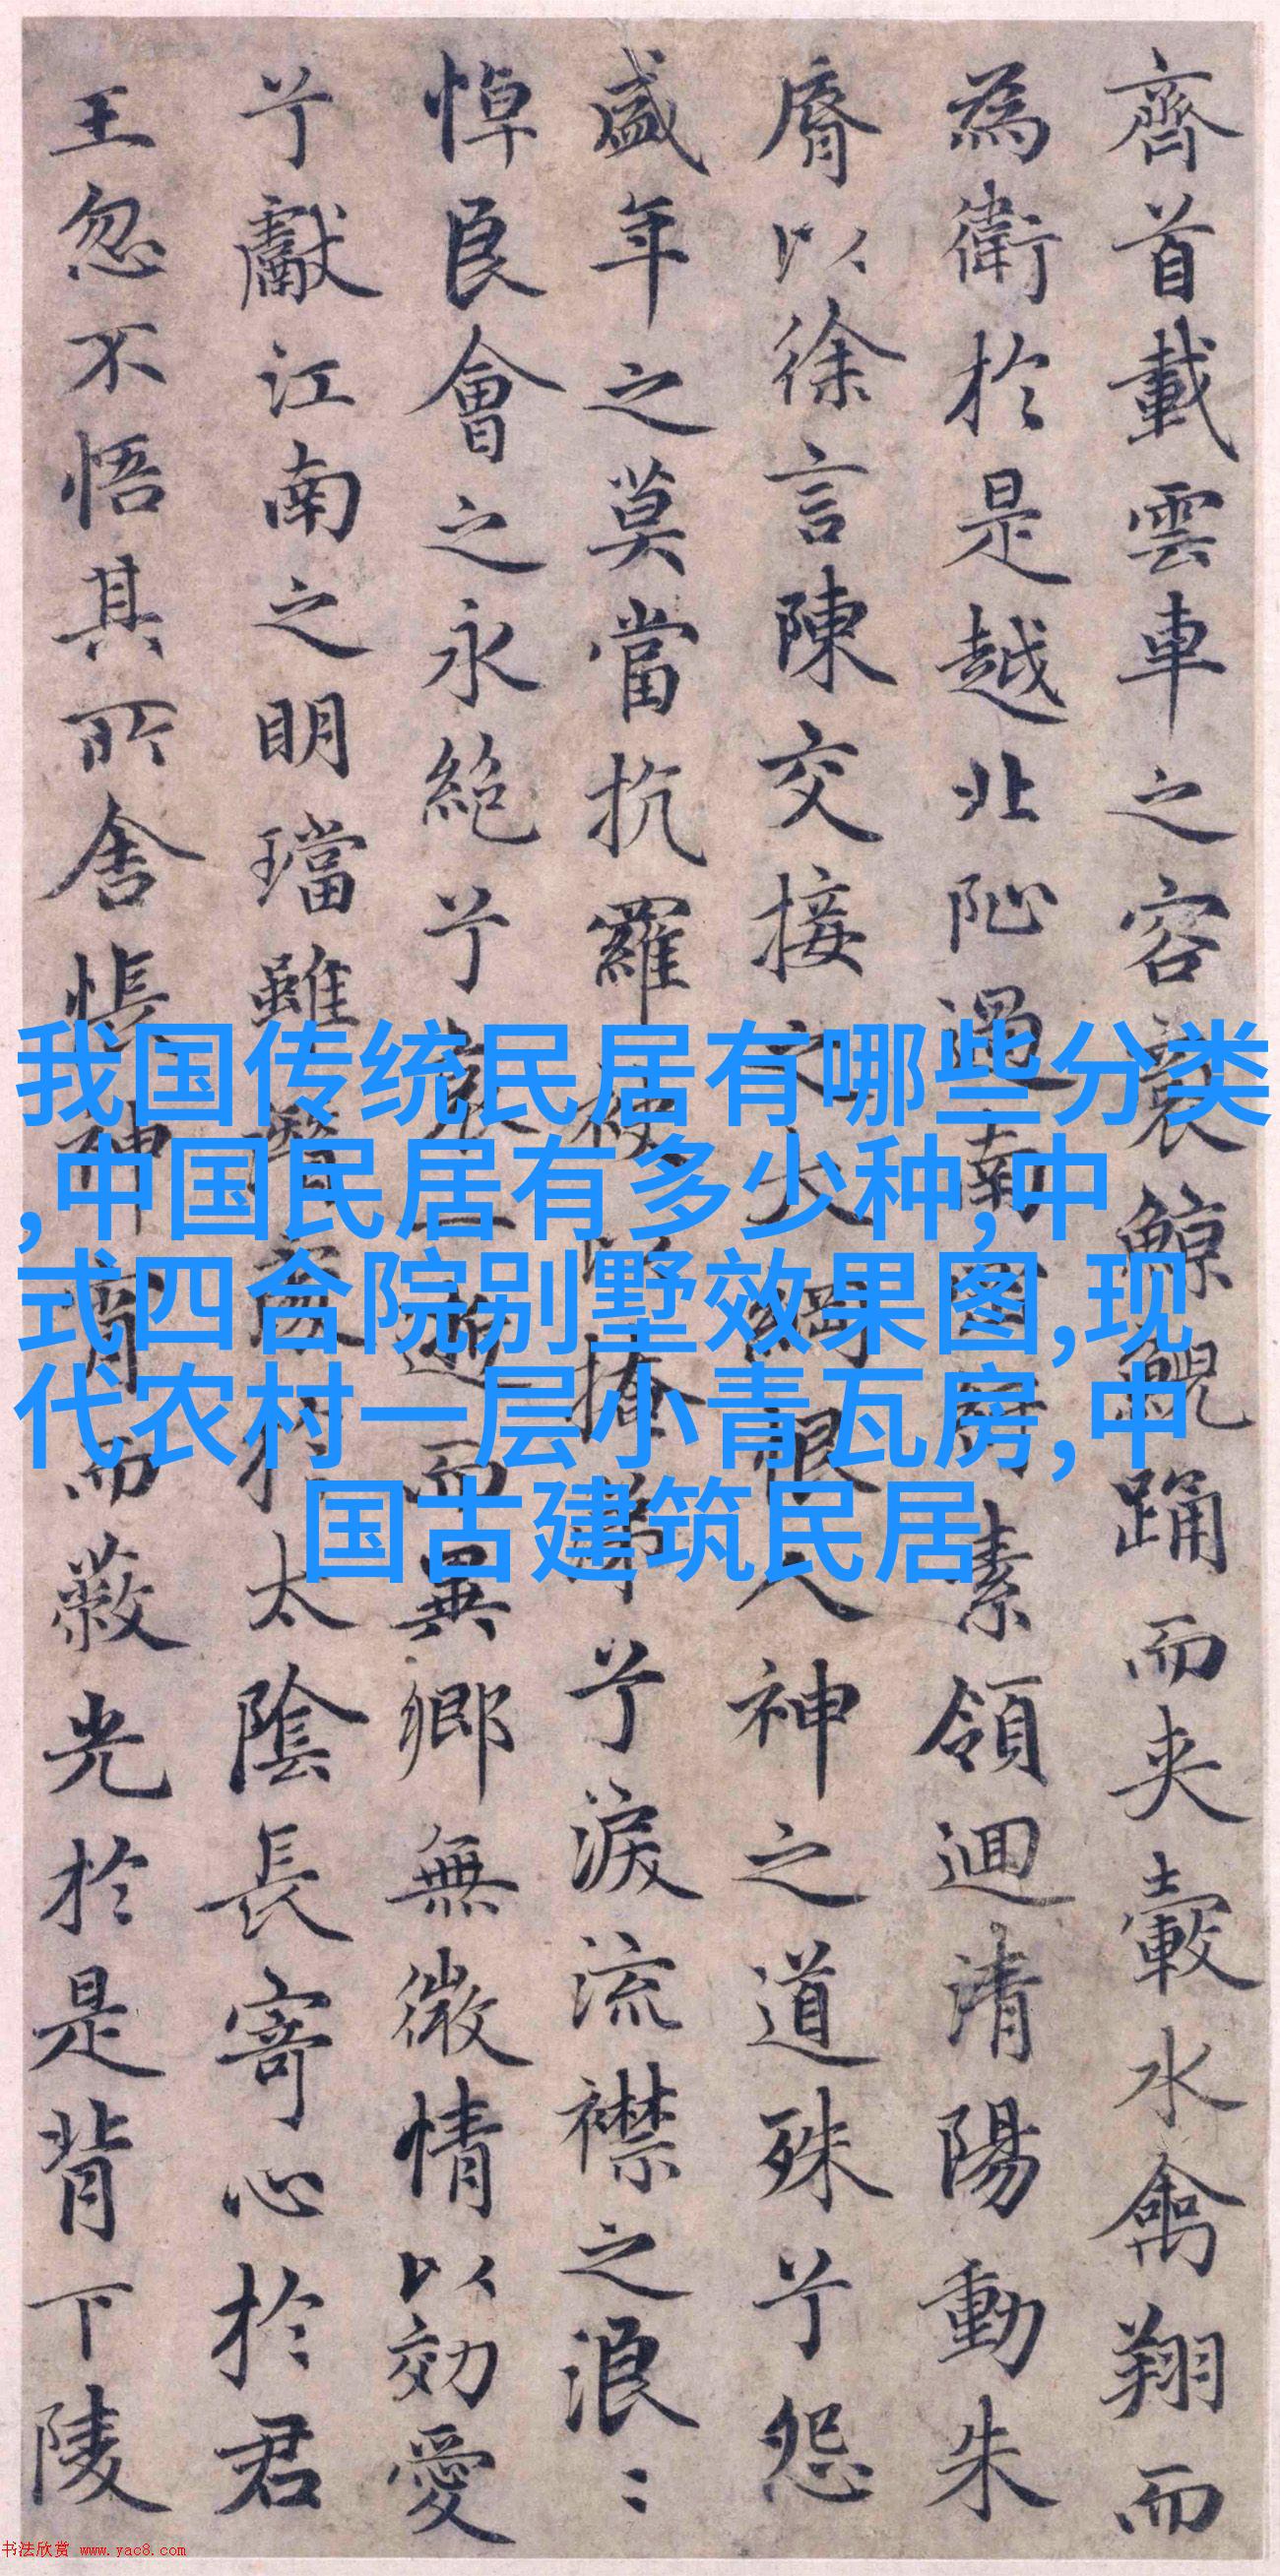 齊首載雲車之容裔鯨鯢踊而夾轂水禽翔而
為衛於是越北沚過南岡紆素領迴清陽動朱
脣以徐言陳交接之大綱恨人神之道殊兮怨
盛年之莫當抗羅袂以掩涕兮淚流襟之浪〻
悼良會之永絕兮哀一逝而異鄉無微情以効愛
兮獻江南之明璫雖潛處於太陰長寄心於君
王忽不悟其所舍悵神宵而蔽光於是背下陵
我国传统民居有哪些分类
,中国民居有多少种,中
式四合院别墅效果图,现
代农村一层小青瓦房,中
国古建筑民居
书法欣赏 www.yac8.com